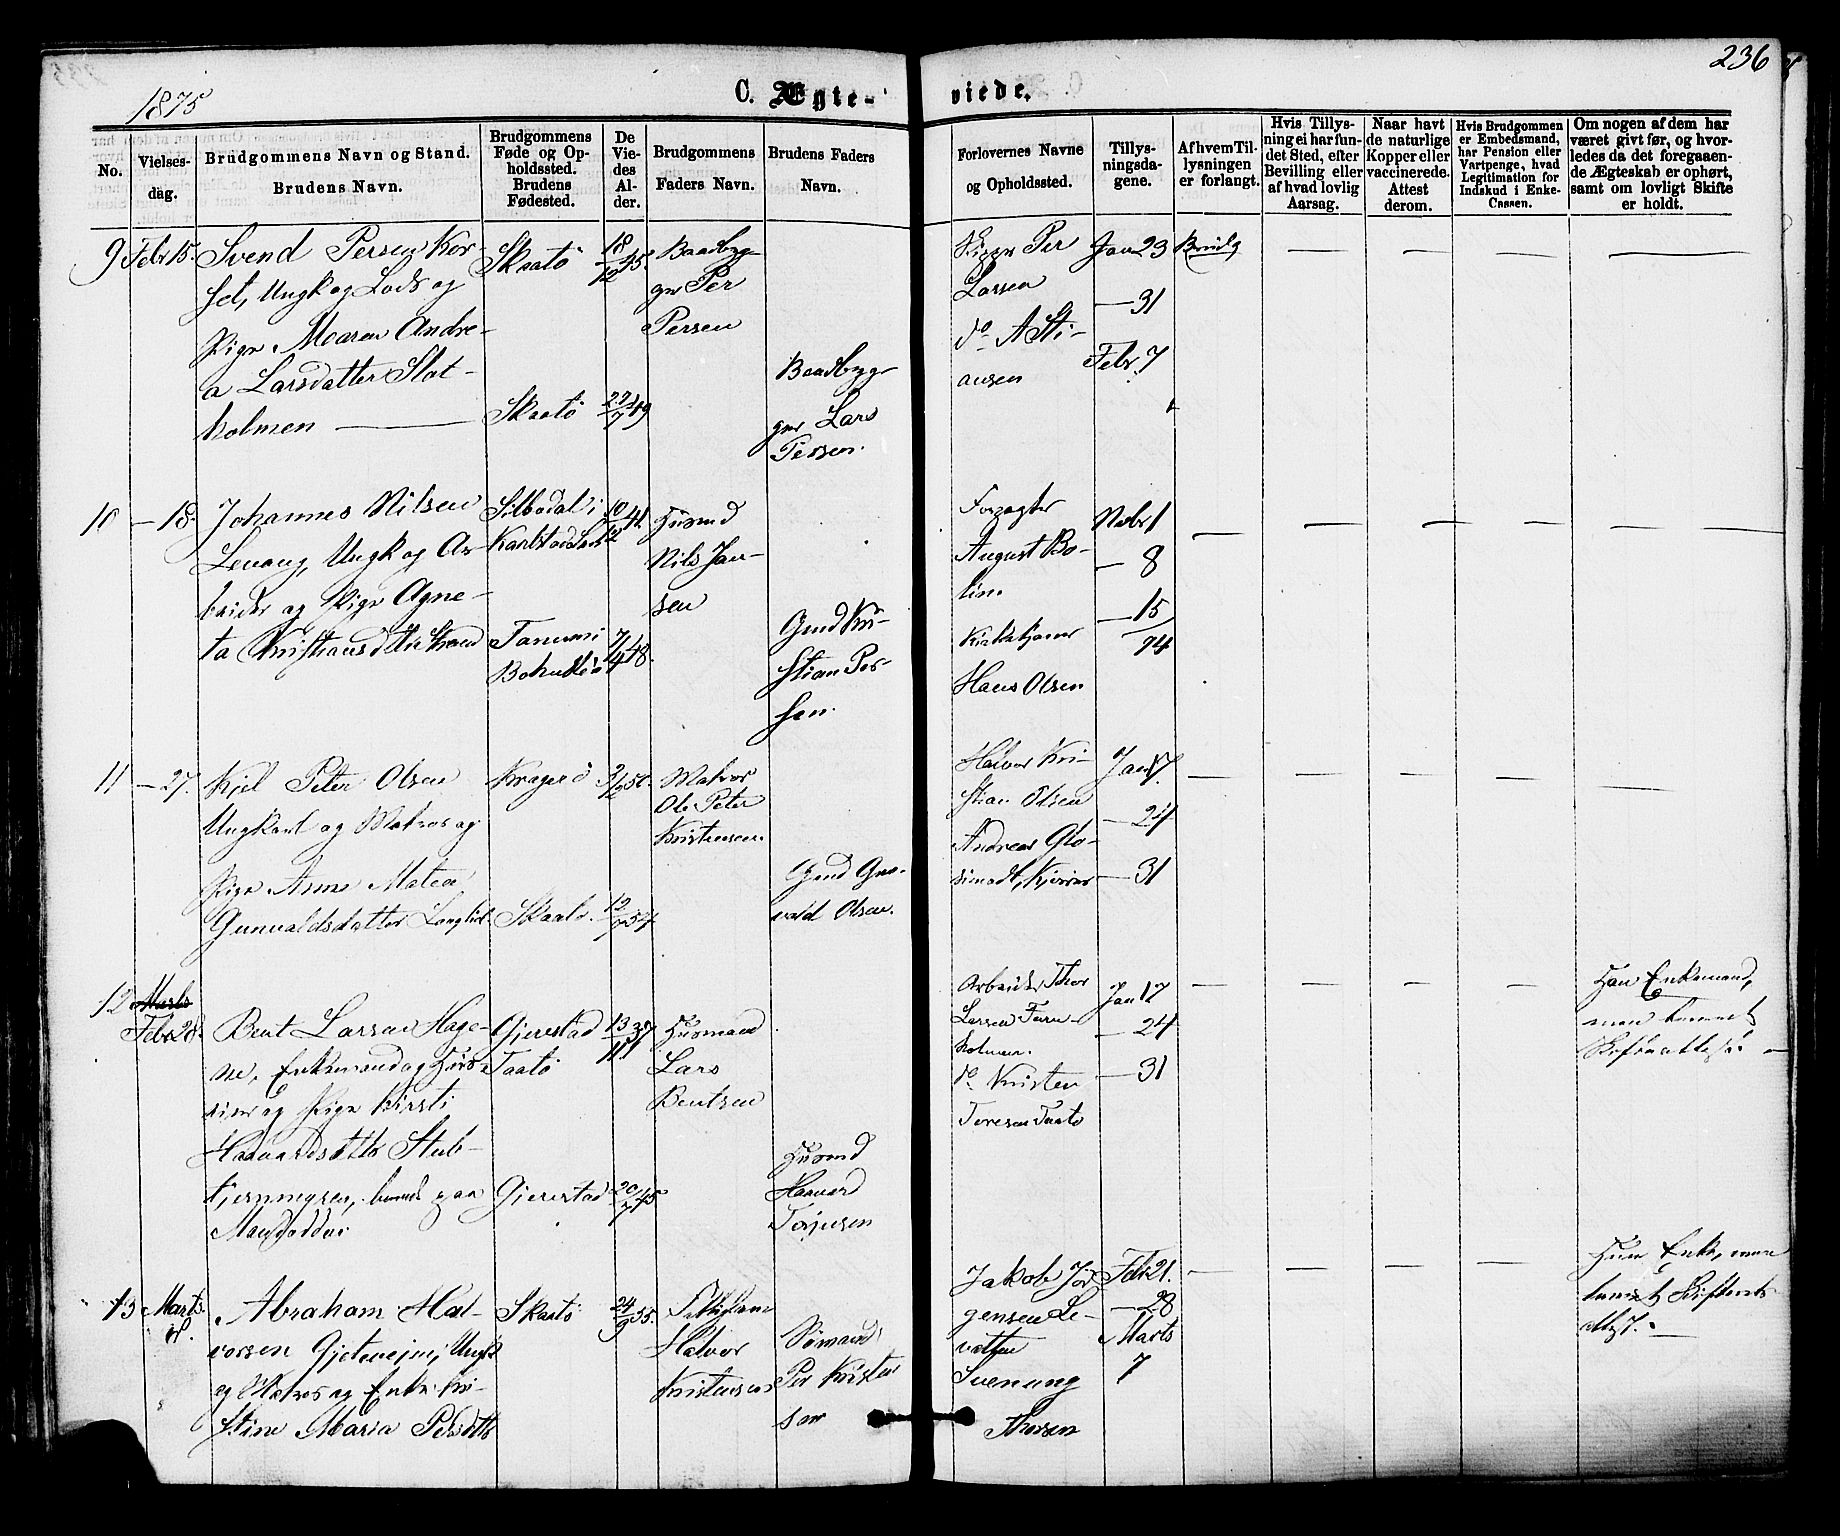 1875
C. Ægte-
viede.
236
No.
Vielses-
dag.
Brudgommens Navn og Stand.
Brudens Navn.
Brudgommens
Føde og Op-
holdssted.
Brudens
Fødested.
De
Vie-
des
Al-
der.
Brudgommens
Faders Navn.
Brudens Faders
Navn.
Forlovernes Navne
og Opholdssted.
Tillys-
ningsda-
gene.
Af hvem Til-
lysningen
er forlangt.
Hvis Tillys-
ning ei har fun-
det Sted, efter
Bevilling eller
af hvad lovlig
Aarsag.
Naar havt
de naturlige
Kopper eller
vaccinerede.
Attest
derom.
Hvis Brudgommen
er Embedsmand,
har Pension eller
Vartpenge, hvad
Legitimation for
Indskud i Enke-
Cassen.
Om nogen af dem har
været givt før, og hvor-
ledes da det foregaaen-
de Ægteskab er ophørt,
samt om lovligt Skifte
er holdt.
9
Febr 15.
Svend Persen Kor-
set, Ungk og Lods og
Pige Maren Andre-
a Larsdatter Slot-
holmen
Skaatö
Skaatö
18/12 45.
27/7 49
Baadbyg-
ger Per
Persen
Baadbyg-
ger Lars
Persen.
Skipper Per
Larsen
do A Sti-
ansen
Jan 23
— 31
Febr. 7
Brudg
10
— 15.
Johannes Nilsen
Levang, Ungk og Ar-
beider og Pige Agne-
ta Kristiansdatter
Silbodal i
Karlstad
Tanum i
10/12 41.
7/4 48.
Husmd
Nils Jan-
sen
Gmd Kri-
stian Per-
sen.
Forpagter
August Bo-
lin.
Hans Olsen
Nvbr 1
— 8
— 15
74
11
— 27.
Kjel Peter Olsen
Ungkarl og Matros og
Pige Anne Matea
Gunvaldsdatter
Kragerö
Skaatö.
12/7 54
Matros
Ole Peter
Kristensen.
Gmd Gun-
vald Olsen.
Halvor Kri-
stian Olsen
Andreas Glo-
Jan 17.
— 24
— 31
12
Marts
Febr 28.
Bent Larsen Hage-
ne, Enkemand og
Pige Kirsti
Haavardsdatter Stub-
tjernmyren,
Gjerestad
Taatö
Gjerestad
13/11 37
20/7 45
Husmand
Lars
Bentsen
Husmd
Haavard
Torjusen
Arbeider Thor
Larsen Furu-
holmen.
do Kristen
Toresen Taatö
Jan 17
— 24
— 31
Han Enkemand,
13
Marts
Abraham Hal-
vorsen
og Matros og Enke Kri-
stine Maria Pedsdtr
Skaatö
24/9 35.
Halvor
Kristensen
Sömand
Per Kristen
sen
Jakob Jör
gensen Le-
Svenung
Thorsen
Febr 21.
— 28
Marts
7
Hun Enke, men